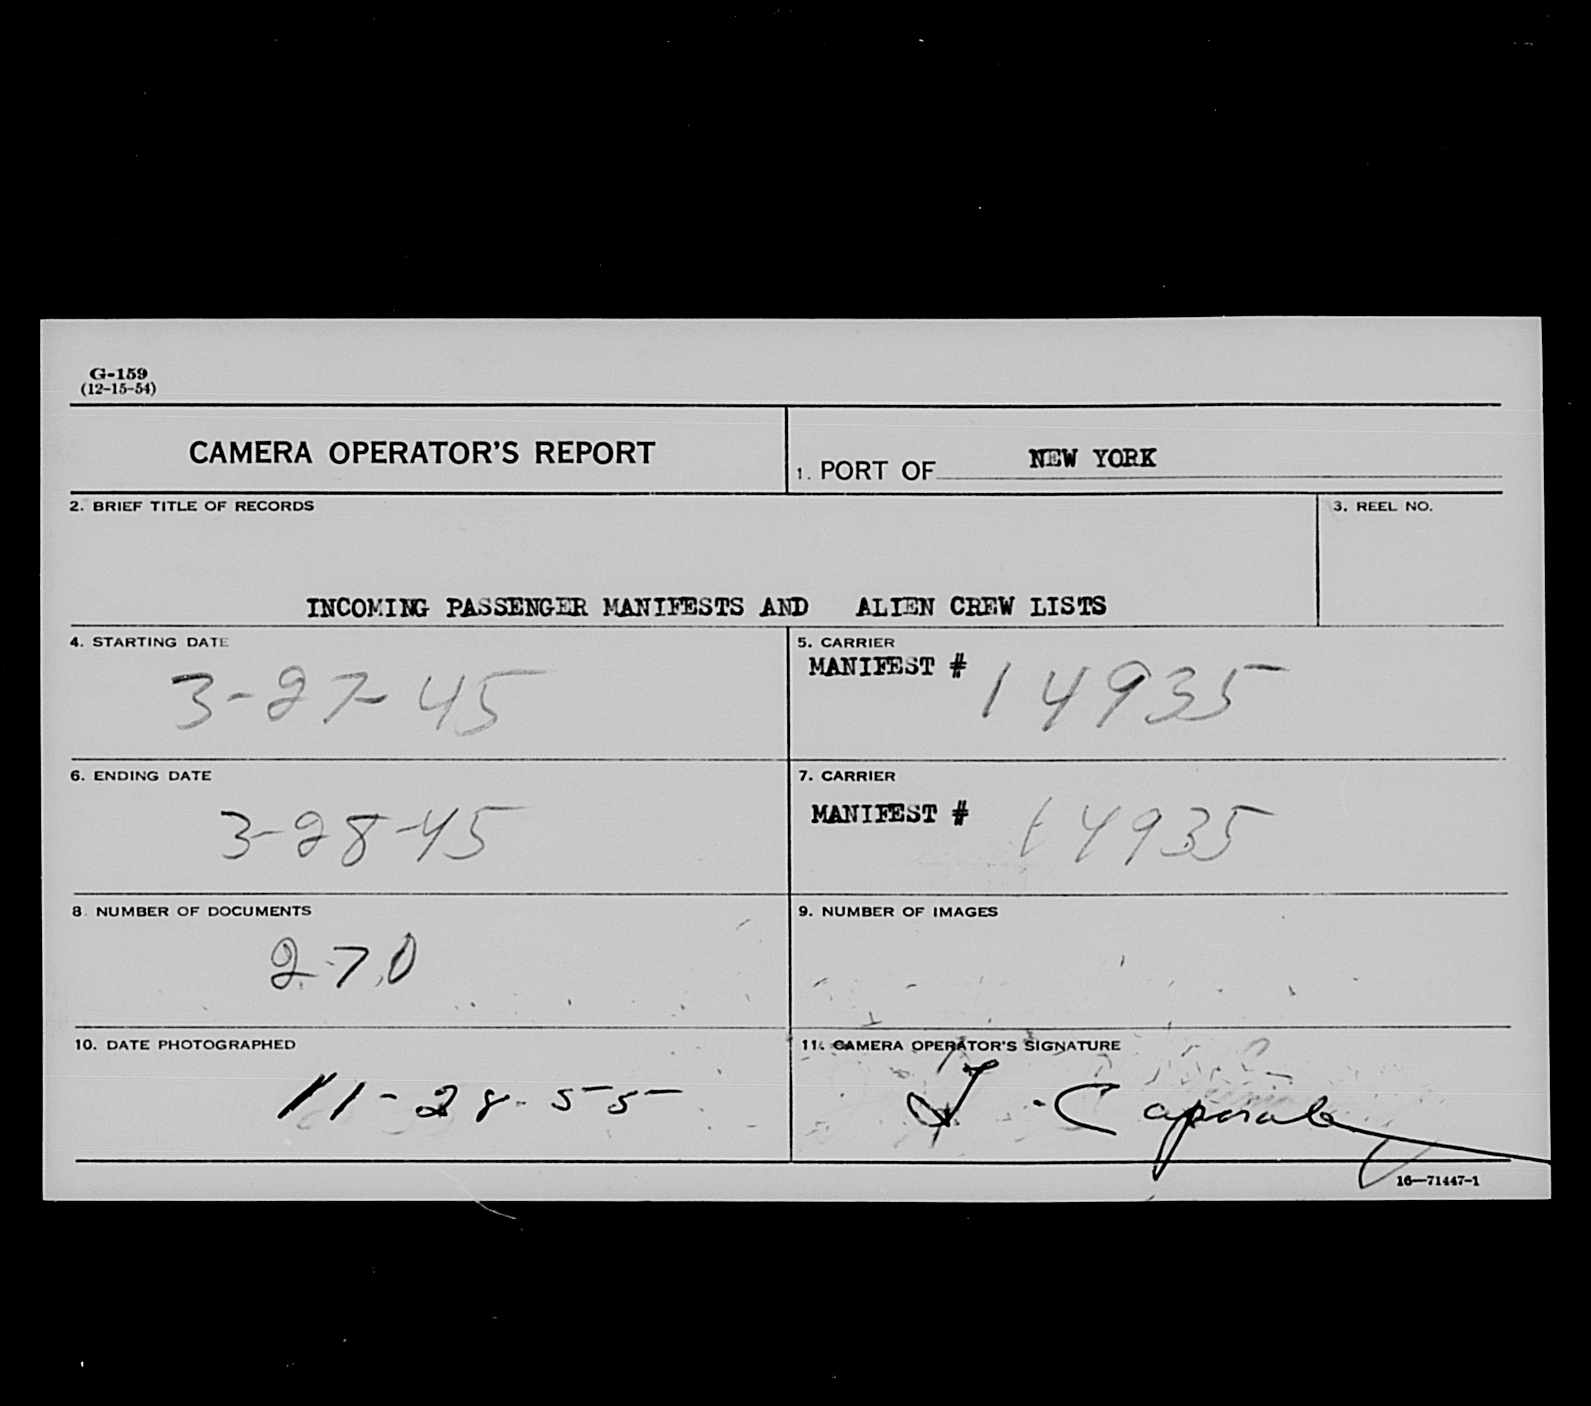 G-159
(12-15-54)
CAMERA OPERATOR'S REPORT
1. PORT OF NEW YORK
2. BRIEF TITLE OF RECORDS
3. REEL NO.
INCOMING PASSENGER MANIFESTS AND ALIEN CREW LISTS
4. STARTING DATE
3-27-45
5. CARRIER
MANIFEST # 14935
6. ENDING DATE
3-28-45
7. CARRIER
MANIFEST # 14935
8. NUMBER OF DOCUMENTS
270
9. NUMBER OF IMAGES
10. DATE PHOTOGRAPHED
11-28-55
11. CAMERA OPERATOR'S SIGNATURE
16—71447-1